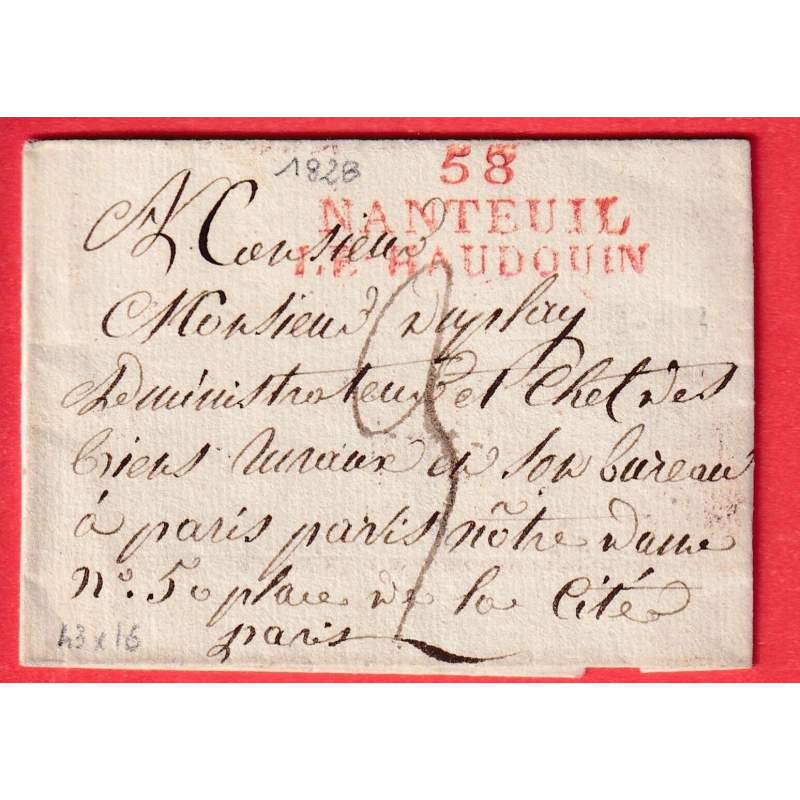 1828
58
NANTEUIL
LE HAUDOUIN
Monsieur
Monsieur Duplay
Administrateur et Chef des
biens ruraux en son bureau
à paris parvis nõtre Dame
N°. 50 place de la Cité
paris
43 x 16